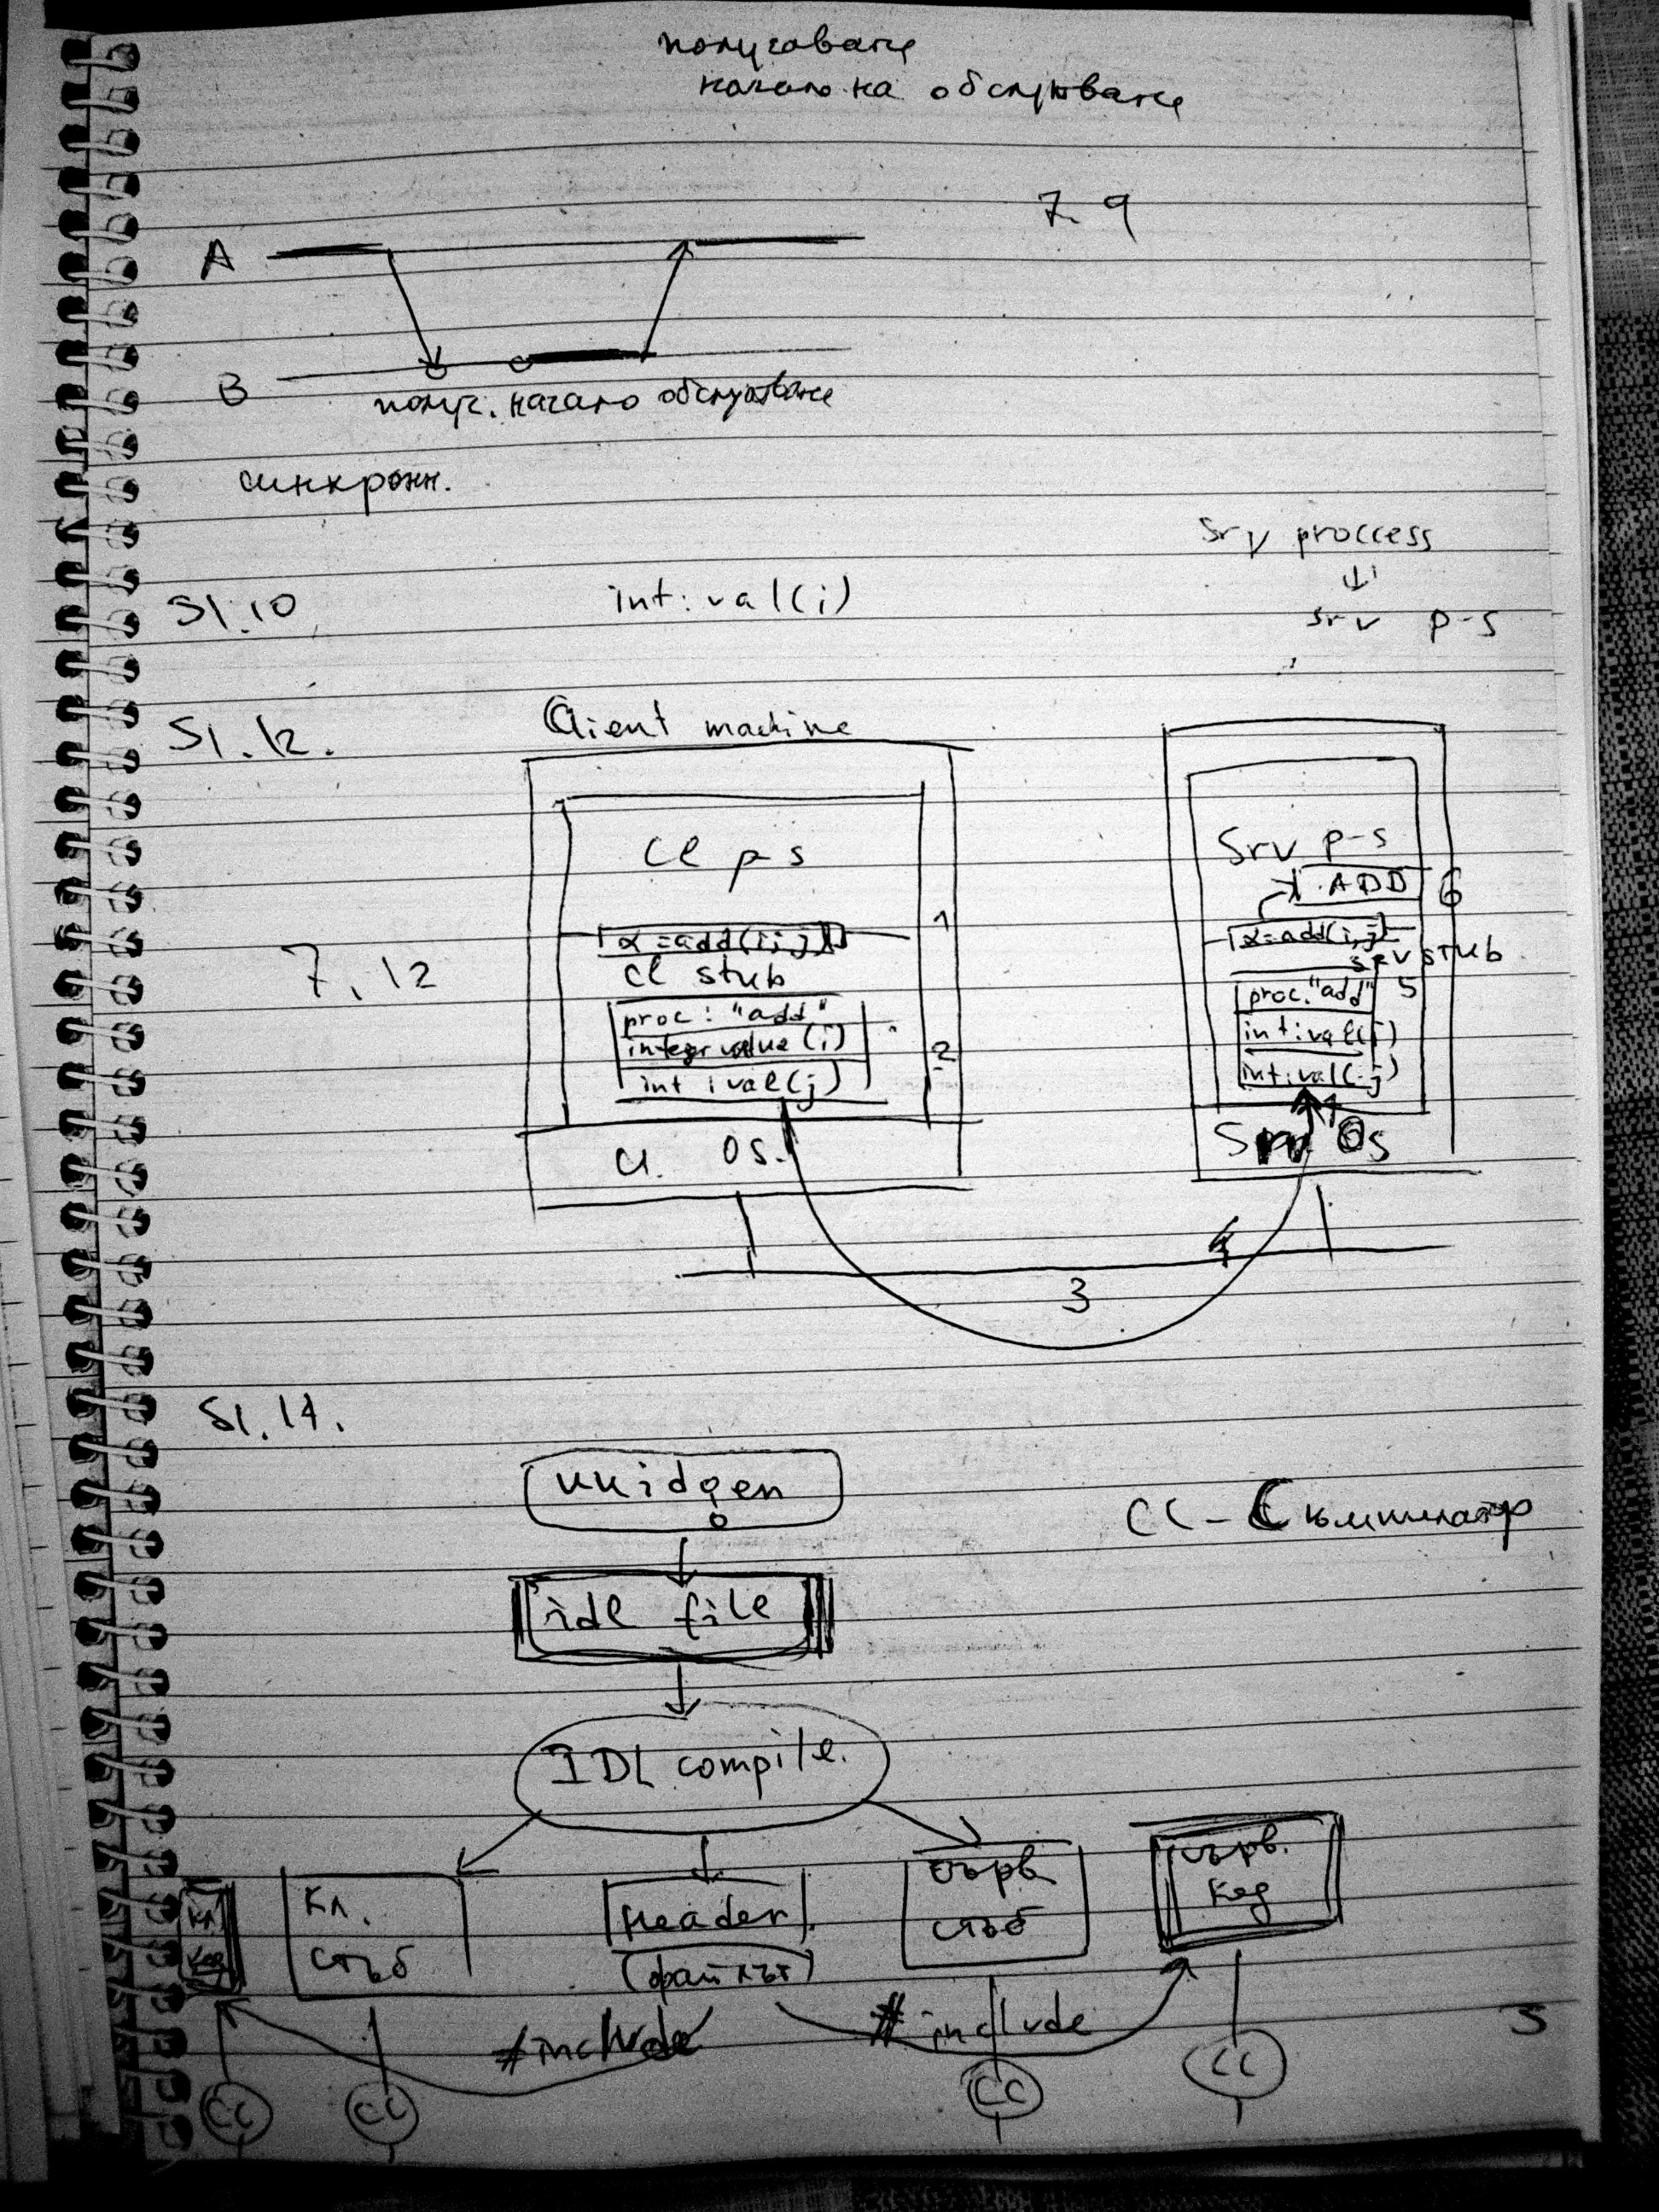 получаване
начало на обслужване
7.9
A
B
получ. начало обслужване
синхронн.
Srv proccess
Sl.10
int:val(i)
srv p-s
Sl.12.
Client machine
Cl p-s
Srv p-s
ADD
6
1
x=add(i,j)
x=add(i,j)
Cl stub
srv stub
7.12
proc: "add"
proc."add"
5
int:val(i)
2
int:val(j)
int:val(j)
Cl. Os.
Srv Os
4
3
Sl.14.
uuidgen
CC - C компилатор
idl file
IDL compile.
Кл.
код
Кл.
стъб
Header
(файлът)
сърв
стъб
сърв.
код
#include
#include
5
CC
CC
CC
CC